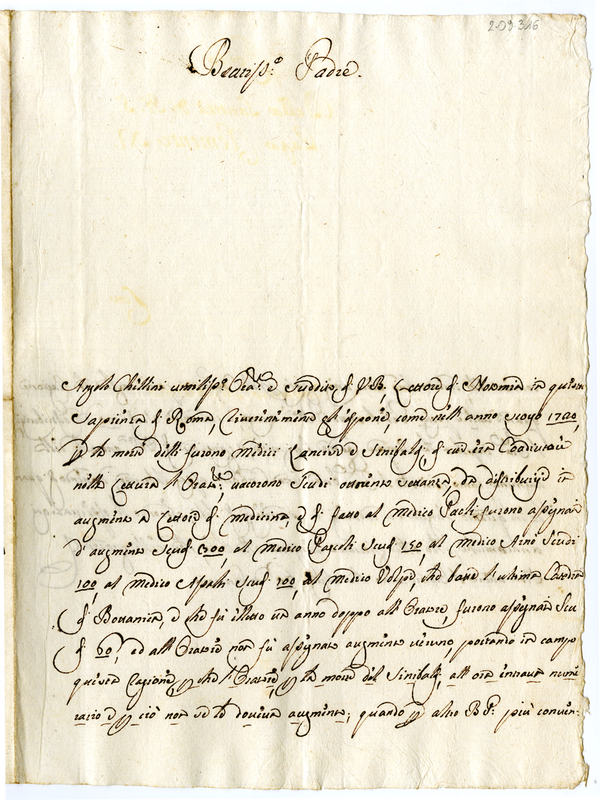 2-09-316
Beatiss.º Padre.
Angelo Chellini umiliss.º Orat.re e Suddito di V.B., Lettore di Notomia in questa
Sapienza di Roma, riverentemente gl'espone come nell'anno 1720,
p la morte delli furono Medici Lancisi e Sinibaldi, di cui era Coadiutore
nella Lettura l'Orat.re, vacorono Scudi ottocento settanta, da distribuirsi in
augmento a Lettori di Medicina, e di fatto al Medico Paoli furono assegnati
d'augmento Scudi 300 al Medico Pascoli Scudi 150, al Medico Scudi
100, al Medico Scudi 100, al Medico Volpi che have l'ultima Cathedra
di Bottanica, e che fù eletto un anno doppo all'Oratore, furono assegnati Scu
di 60, ed all'Oratore non fù assegnato augmento veruno portando in campo
questa Cagione, p che l'Oratore, p la morte del Sinibaldi, all'ora entrava nume
rario e p ciò non se le doveva augmento; quando p altro B. P. più conven-